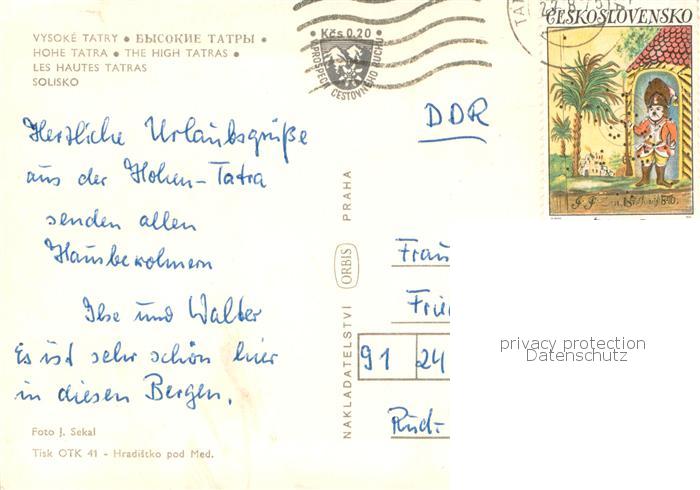 VYSOKÉ TATRY • ВЫСОКИЕ ТАТРЫ •
HOHE TATRA • THE HIGH TATRAS •
LES HAUTES TATRAS
SOLISKO
Kčs 0,20
V PROSPĚCH CESTOVNÉHO RUCHU
ČESKOSLOVENSKO
Herzliche Urlaubsgrüße
aus der Hohen-Tatra
senden allen
Hausbewohnern
Ilse und Walter
Es ist sehr schön hier
in diesen Bergen.
Foto J. Sekal
Tisk OTK 41 - Hradištko pod Med.
NAKLADATELSTVÍ ORBIS PRAHA
DDR
Frau
Frie
91 24
Rud-
privacy protection
Datenschutz